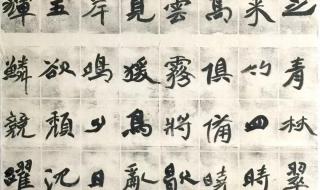 之青林翠
来竹四時
高俱備曉
雲霧將歇
見猨鳥亂
岸鳴夕日
五欲頹沈
輝鱗競躍